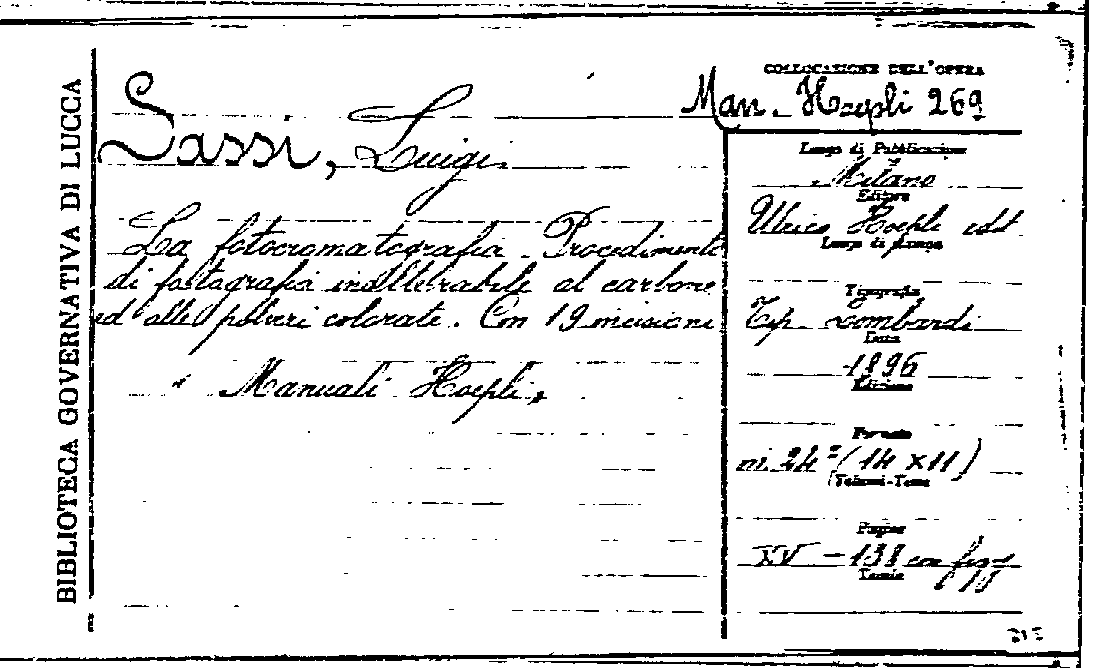 BIBLIOTECA GOVERNATIVA DI LUCCA
COLLOCAZIONE DELL'OPERA
Man. Hoepli 269
Sassi, Luigi.
La fotocromatografia. Procedimento
di fotografia inalterabile al carbone
ed alle polveri colorate. Con 19 incisioni
" Manuali Hoepli "
Luogo di Pubblicazione
Milano
Editore
Ulrico Hoepli edit.
Luogo di stampa
Tipografia
Tip. Lombardi
Data
1896
Edizione
Formato
in 24° (14 x 11)
Volumi-Tomo
Pagine
XV - 138 con figg
Tavole